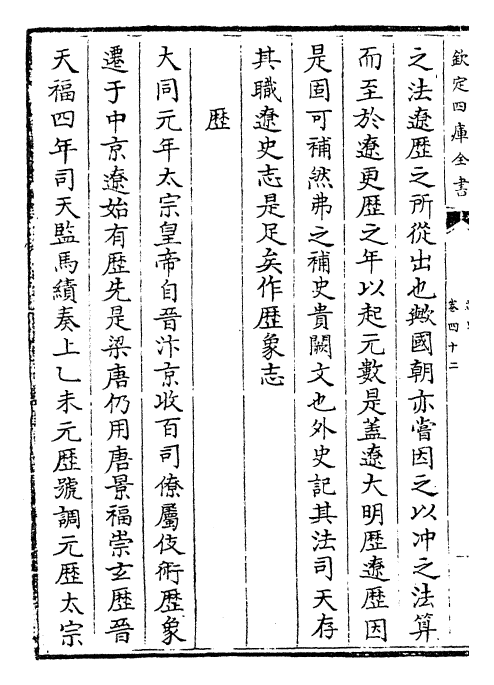 欽定四庫全書
卷四十二
之法遼歴之所從出也歟國朝亦嘗因之以冲之法算
而至於遼更歴之年以起元數是蓋遼大明歴遼歴因
是固可補然弗之補史貴闕文也外史記其法司天存
其職遼史志是足矣作歴象志
歴
大同元年太宗皇帝自晉汴京收百司僚屬伎術歴象
遷于中京遼始有歴先是梁唐仍用唐景福崇玄歴晉
天福四年司天監馬績奏上乙未元歴號調元歴太宗